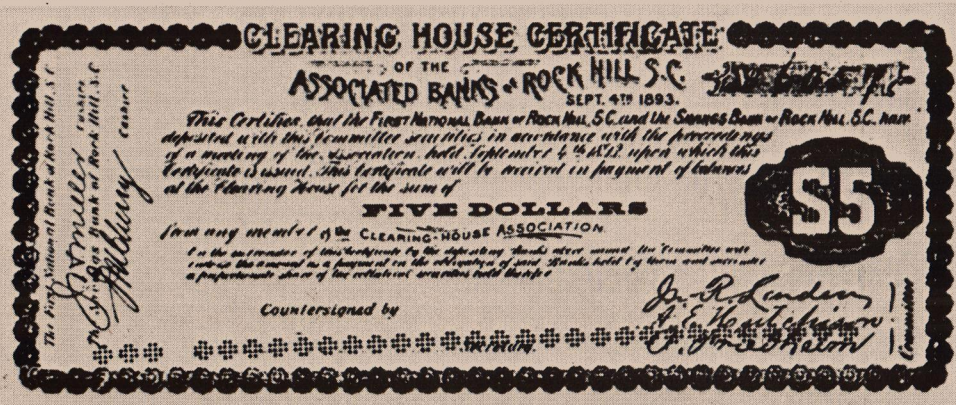 CLEARING HOUSE CERTIFICATE
OF THE
ASSOCIATED BANKS OF ROCK HILL S.C.
SEPT. 4TH 1893.
This Certifies, that the FIRST NATIONAL BANK OF ROCK HILL, S.C. and the SAVINGS BANK OF ROCK HILL S.C. have
deposited with this Committee securities in accordance with the proceedings
of a meeting of the Association held September 4th 1893 upon which this
Certificate is issued. This Certificate will be received in payment of balances
at the Clearing House for the sum of
$5
FIVE DOLLARS
from any member of the CLEARING-HOUSE ASSOCIATION
a proportionate share of the collateral securities held therefor
Countersigned by
J. R. London
A. E. Hutchison
A. Friedheim
Committee
The First National Bank of Rock Hill, S.C
Cashier
The Savings Bank of Rock Hill S.C
Cashier